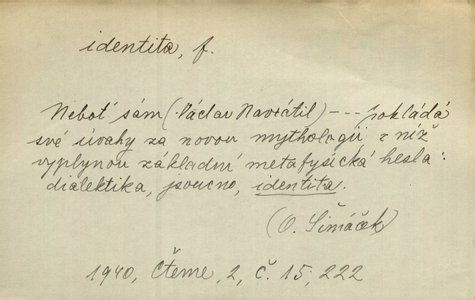 identita, f.
Neboť sám (Václav Navrátil) --- pokládá
své úvahy za novou mythologii z níž
vyplynou základní metafysická hesla:
dialektika, jsoucno, identita.
(O. Šimáček)
1940, Čteme, 2, č. 15, 222